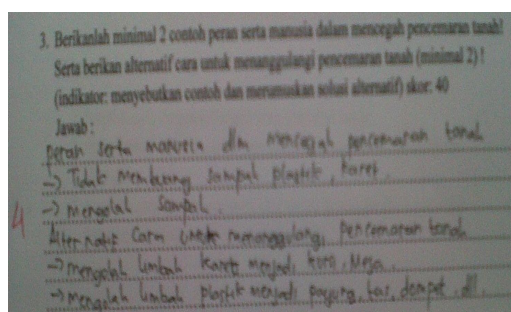 3. Berikanlah minimal 2 contoh peran serta manusia dalam mencegah pencemaran tanah!
Serta berikan alternatif cara untuk menanggulangi pencemaran tanah (minimal 2) !
(indikator: menyebutkan contoh dan merumuskan solusi alternatif) skor: 40
Jawab :
peran serta manusia dlm mencegah pencemaran tanah
-> Tidak membuang sampah plastik, karet
-> mengolah sampah.
4
Alternatif Cara untuk menanggulangi pencemaran tanah
-> mengolah limbah karet menjadi kursi, Meja
-> mengolah limbah plastik menjadi payung, tas, dompet, dll.